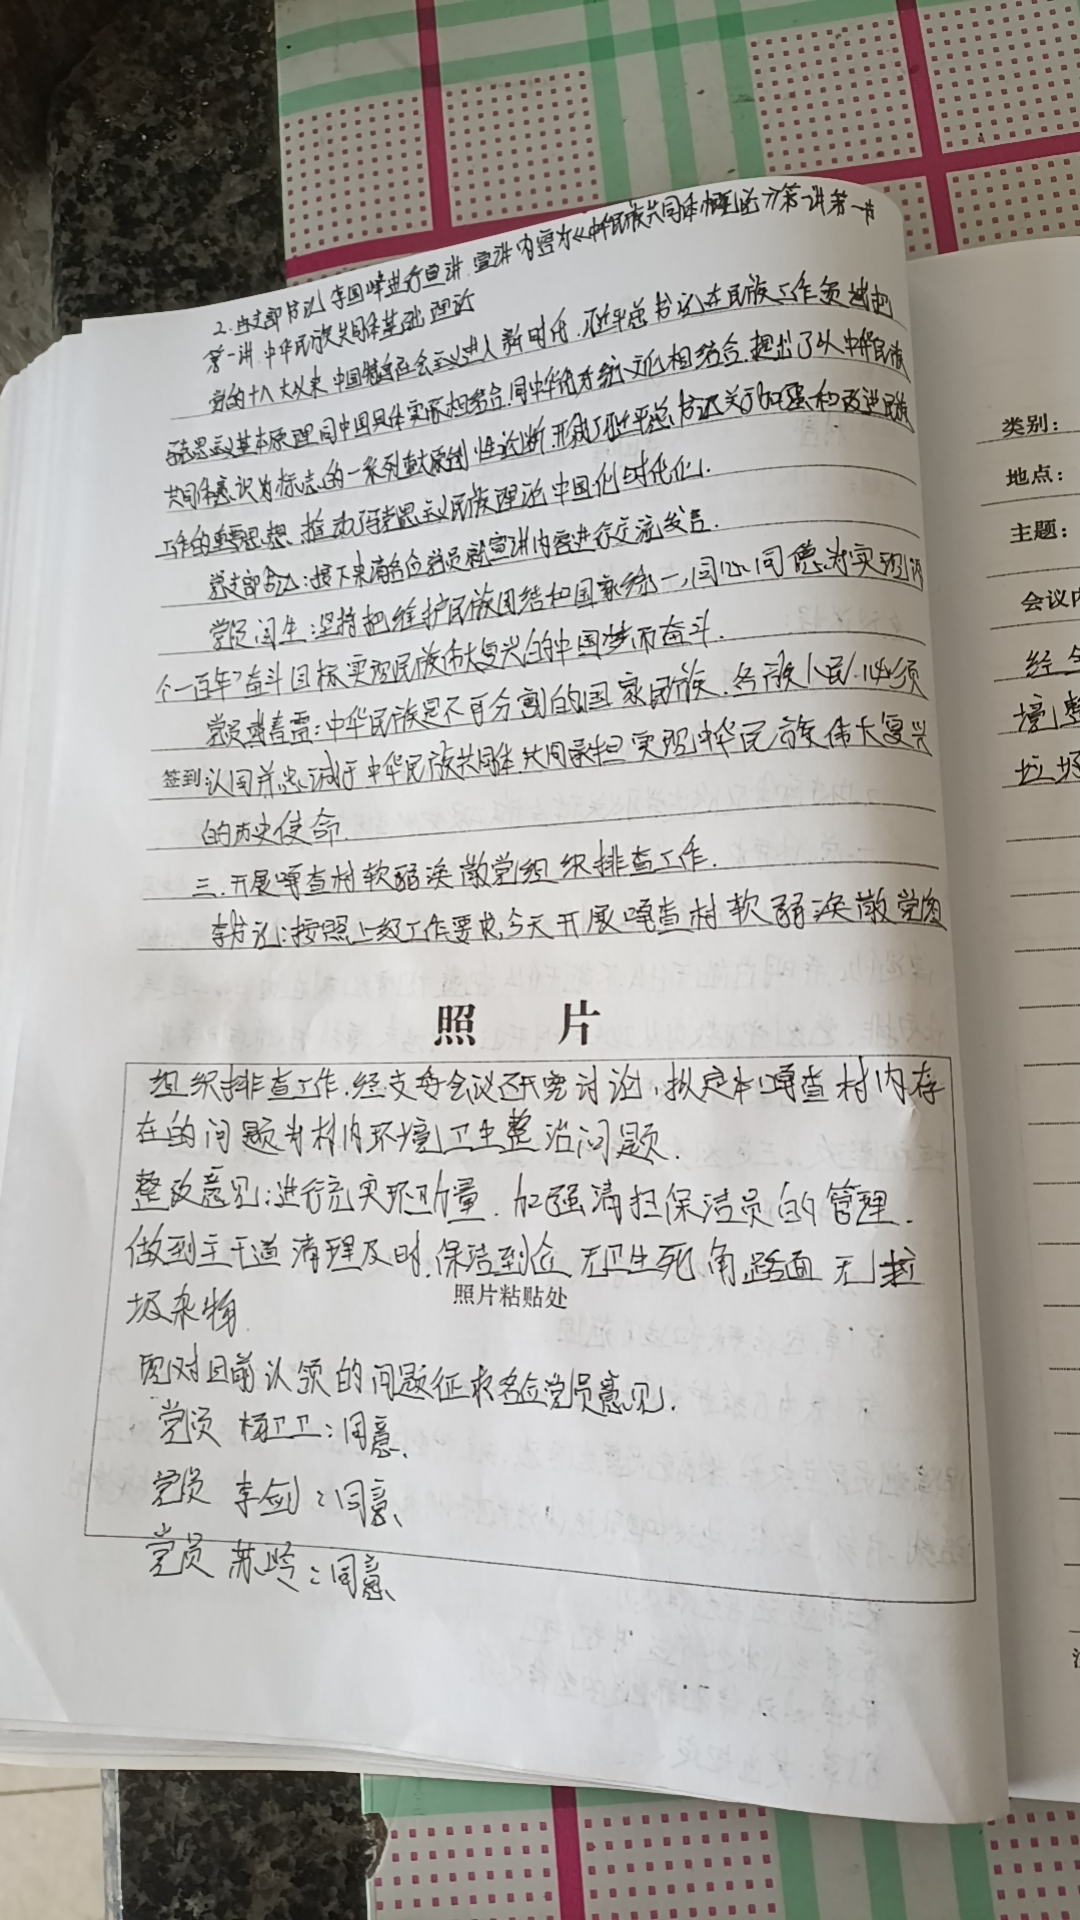 2.由支部书记李国峰进行宣讲,宣讲内容为《中华民族共同体概论》第一讲第一节
第一讲.中华民族共同体基础理论
党的十八大以来,中国特色社会主义进入新时代,习近平总书记在民族工作领域把
马克思主义基本原理同中国具体实际相结合,同中华优秀传统文化相结合,提出了以中华民族
共同体意识为标志的一系列重大原创性论断,形成了习近平总书记关于加强和改进民族
工作的重要思想,推动马克思主义民族理论中国化时代化.
党支部书记:接下来请各位党员就宣讲内容进行交流发言.
党员闫生:坚持把维护民族团结和国家统一,同心同德,对实现
个一百年”奋斗目标实现民族伟大复兴的中国梦而奋斗.
党员 春雷:中华民族是不可分割的国家民族.各族人民.必须
签到
认同并忠诚于中华民族共同体,共同承担实现中华民族伟大复兴
的历史使命.
三.开展嘎查村软弱涣散党组织排查工作.
李书记:按照上级工作要求,今天开展嘎查村软弱涣散党
照 片
组织排查工作.经支委会议研究讨论,拟定本嘎查村内存
在的问题为村内环境卫生整治问题.
整改意见:进行充实环卫力量.加强清扫保洁员的管理.
做到主干道清理及时,保洁到位,无卫生死角,路面无垃
照片粘贴处
圾杂物.
现对目前认领的问题征求各位党员意见.
党员 杨卫卫:同意.
党员 李剑:同意.
党员 苏岭:同意.
类别:
地点:
主题:
会议内
经
境
垃圾